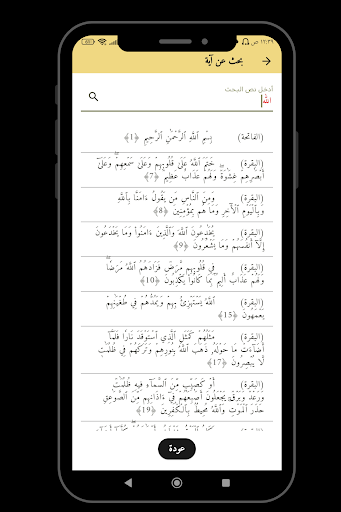 ١٢:٣٩ ص
بحث عن آية
أدخل نص البحث
الله
(الفاتحة) بِسْمِ ٱللَّهِ ٱلرَّحْمَٰنِ ٱلرَّحِيمِ ﴿1﴾
(البقرة) خَتَمَ ٱللَّهُ عَلَىٰ قُلُوبِهِمْ وَعَلَىٰ سَمْعِهِمْ ۖ وَعَلَىٰٓ
أَبْصَٰرِهِمْ غِشَٰوَةٌ ۖ وَلَهُمْ عَذَابٌ عَظِيمٌ ﴿7﴾
(البقرة) وَمِنَ ٱلنَّاسِ مَن يَقُولُ ءَامَنَّا بِٱللَّهِ
وَبِٱلْيَوْمِ ٱلْءَاخِرِ وَمَا هُم بِمُؤْمِنِينَ ﴿8﴾
(البقرة) يُخَٰدِعُونَ ٱللَّهَ وَٱلَّذِينَ ءَامَنُوا۟ وَمَا يَخْدَعُونَ
إِلَّآ أَنفُسَهُمْ وَمَا يَشْعُرُونَ ﴿9﴾
(البقرة) فِى قُلُوبِهِم مَّرَضٌ فَزَادَهُمُ ٱللَّهُ مَرَضًا ۖ
وَلَهُمْ عَذَابٌ أَلِيمٌۢ بِمَا كَانُوا۟ يَكْذِبُونَ ﴿10﴾
(البقرة) ٱللَّهُ يَسْتَهْزِئُ بِهِمْ وَيَمُدُّهُمْ فِى طُغْيَٰنِهِمْ
يَعْمَهُونَ ﴿15﴾
(البقرة) مَثَلُهُمْ كَمَثَلِ ٱلَّذِى ٱسْتَوْقَدَ نَارًا فَلَمَّآ
أَضَآءَتْ مَا حَوْلَهُۥ ذَهَبَ ٱللَّهُ بِنُورِهِمْ وَتَرَكَهُمْ فِى ظُلُمَٰتٍ
لَّا يُبْصِرُونَ ﴿17﴾
(البقرة) أَوْ كَصَيِّبٍ مِّنَ ٱلسَّمَآءِ فِيهِ ظُلُمَٰتٌ
وَرَعْدٌ وَبَرْقٌ يَجْعَلُونَ أَصَٰبِعَهُمْ فِىٓ ءَاذَانِهِم مِّنَ ٱلصَّوَٰعِقِ
حَذَرَ ٱلْمَوْتِ ۚ وَٱللَّهُ مُحِيطٌۢ بِٱلْكَٰفِرِينَ ﴿19﴾
عودة